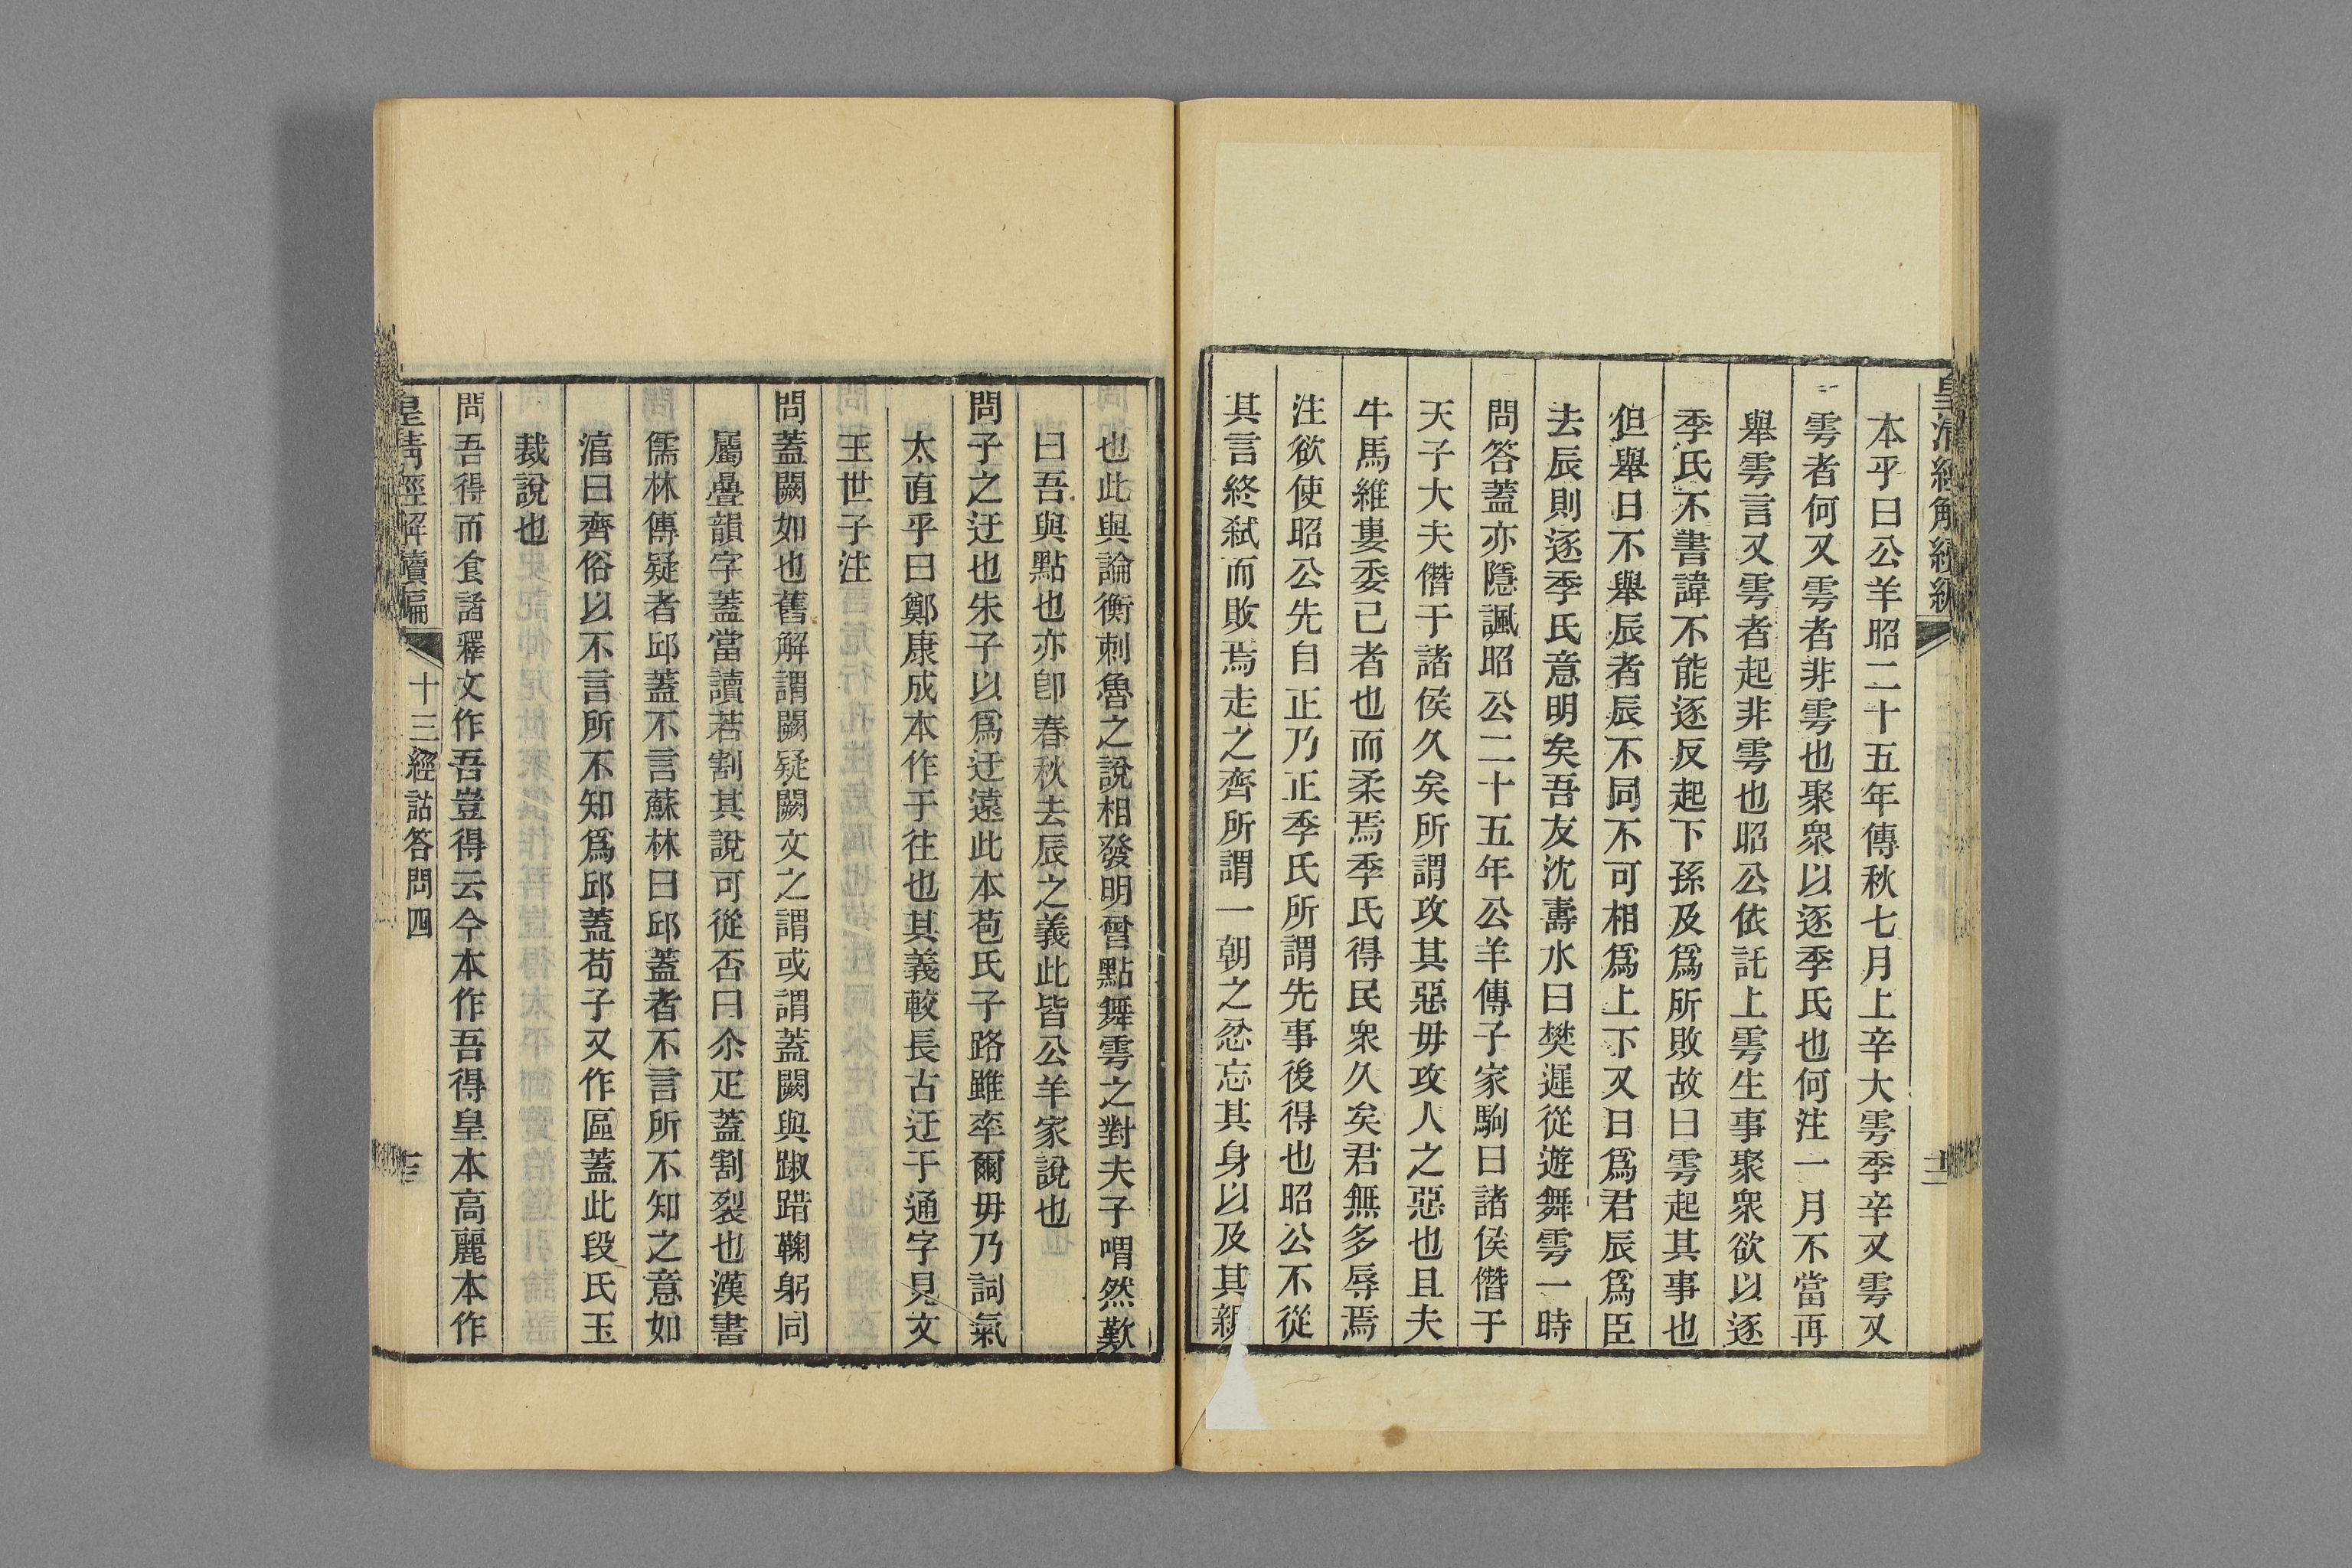 本乎曰公羊昭二十五年傳秋七月上辛大雩季辛又雩又
雩者何又雩者非雩也聚衆以逐季氏也何注一月不當再
舉雩言又雩者起非雩也昭公依託上雩生事聚衆欲以逐
季氏不書諱不能逐反起下孫及爲所敗故曰雩起其事也
但舉日不舉辰者辰不同不可相爲上下又日爲君辰爲臣
去辰則逐季氏意明矣吾友沈壽水曰樊遲從遊舞雩一時
問答蓋亦隱諷昭公二十五年公羊傳子家駒曰諸侯僭于
天子大夫僭于諸侯久矣所謂攻其惡毋攻人之惡也且夫
牛馬維婁委己者也而柔焉季氏得民衆久矣君無多辱焉
注欲使昭公先自正乃正季氏所謂先事後得也昭公不從
其言終弒而敗焉走之齊所謂一朝之忿忘其身以及其親
也此與論衡刺魯之說相發明曾點舞雩之對夫子喟然歎
曰吾與點也亦卽春秋去辰之義此皆公羊家說也
問子之迂也朱子以爲迂遠此本苞氏子路雖率爾毋乃詞氣
太直乎曰鄭康成本作于往也其義較長古迂于通字見文
王世子注
問蓋闕如也舊解謂闕疑闕文之謂或謂蓋闕與踧踖鞠躬同
屬疊韻字蓋當讀若割其說可從否曰尒疋蓋割裂也漢書
儒林傳疑者邱蓋不言蘇林曰邱蓋者不言所不知之意如
湻曰齊俗以不言所不知爲邱蓋荀子又作區蓋此段氏玉
裁說也
問吾得而食諸釋文作吾豈得云今本作吾得皇本高麗本作
皇清經解續編
十三經詁答問四